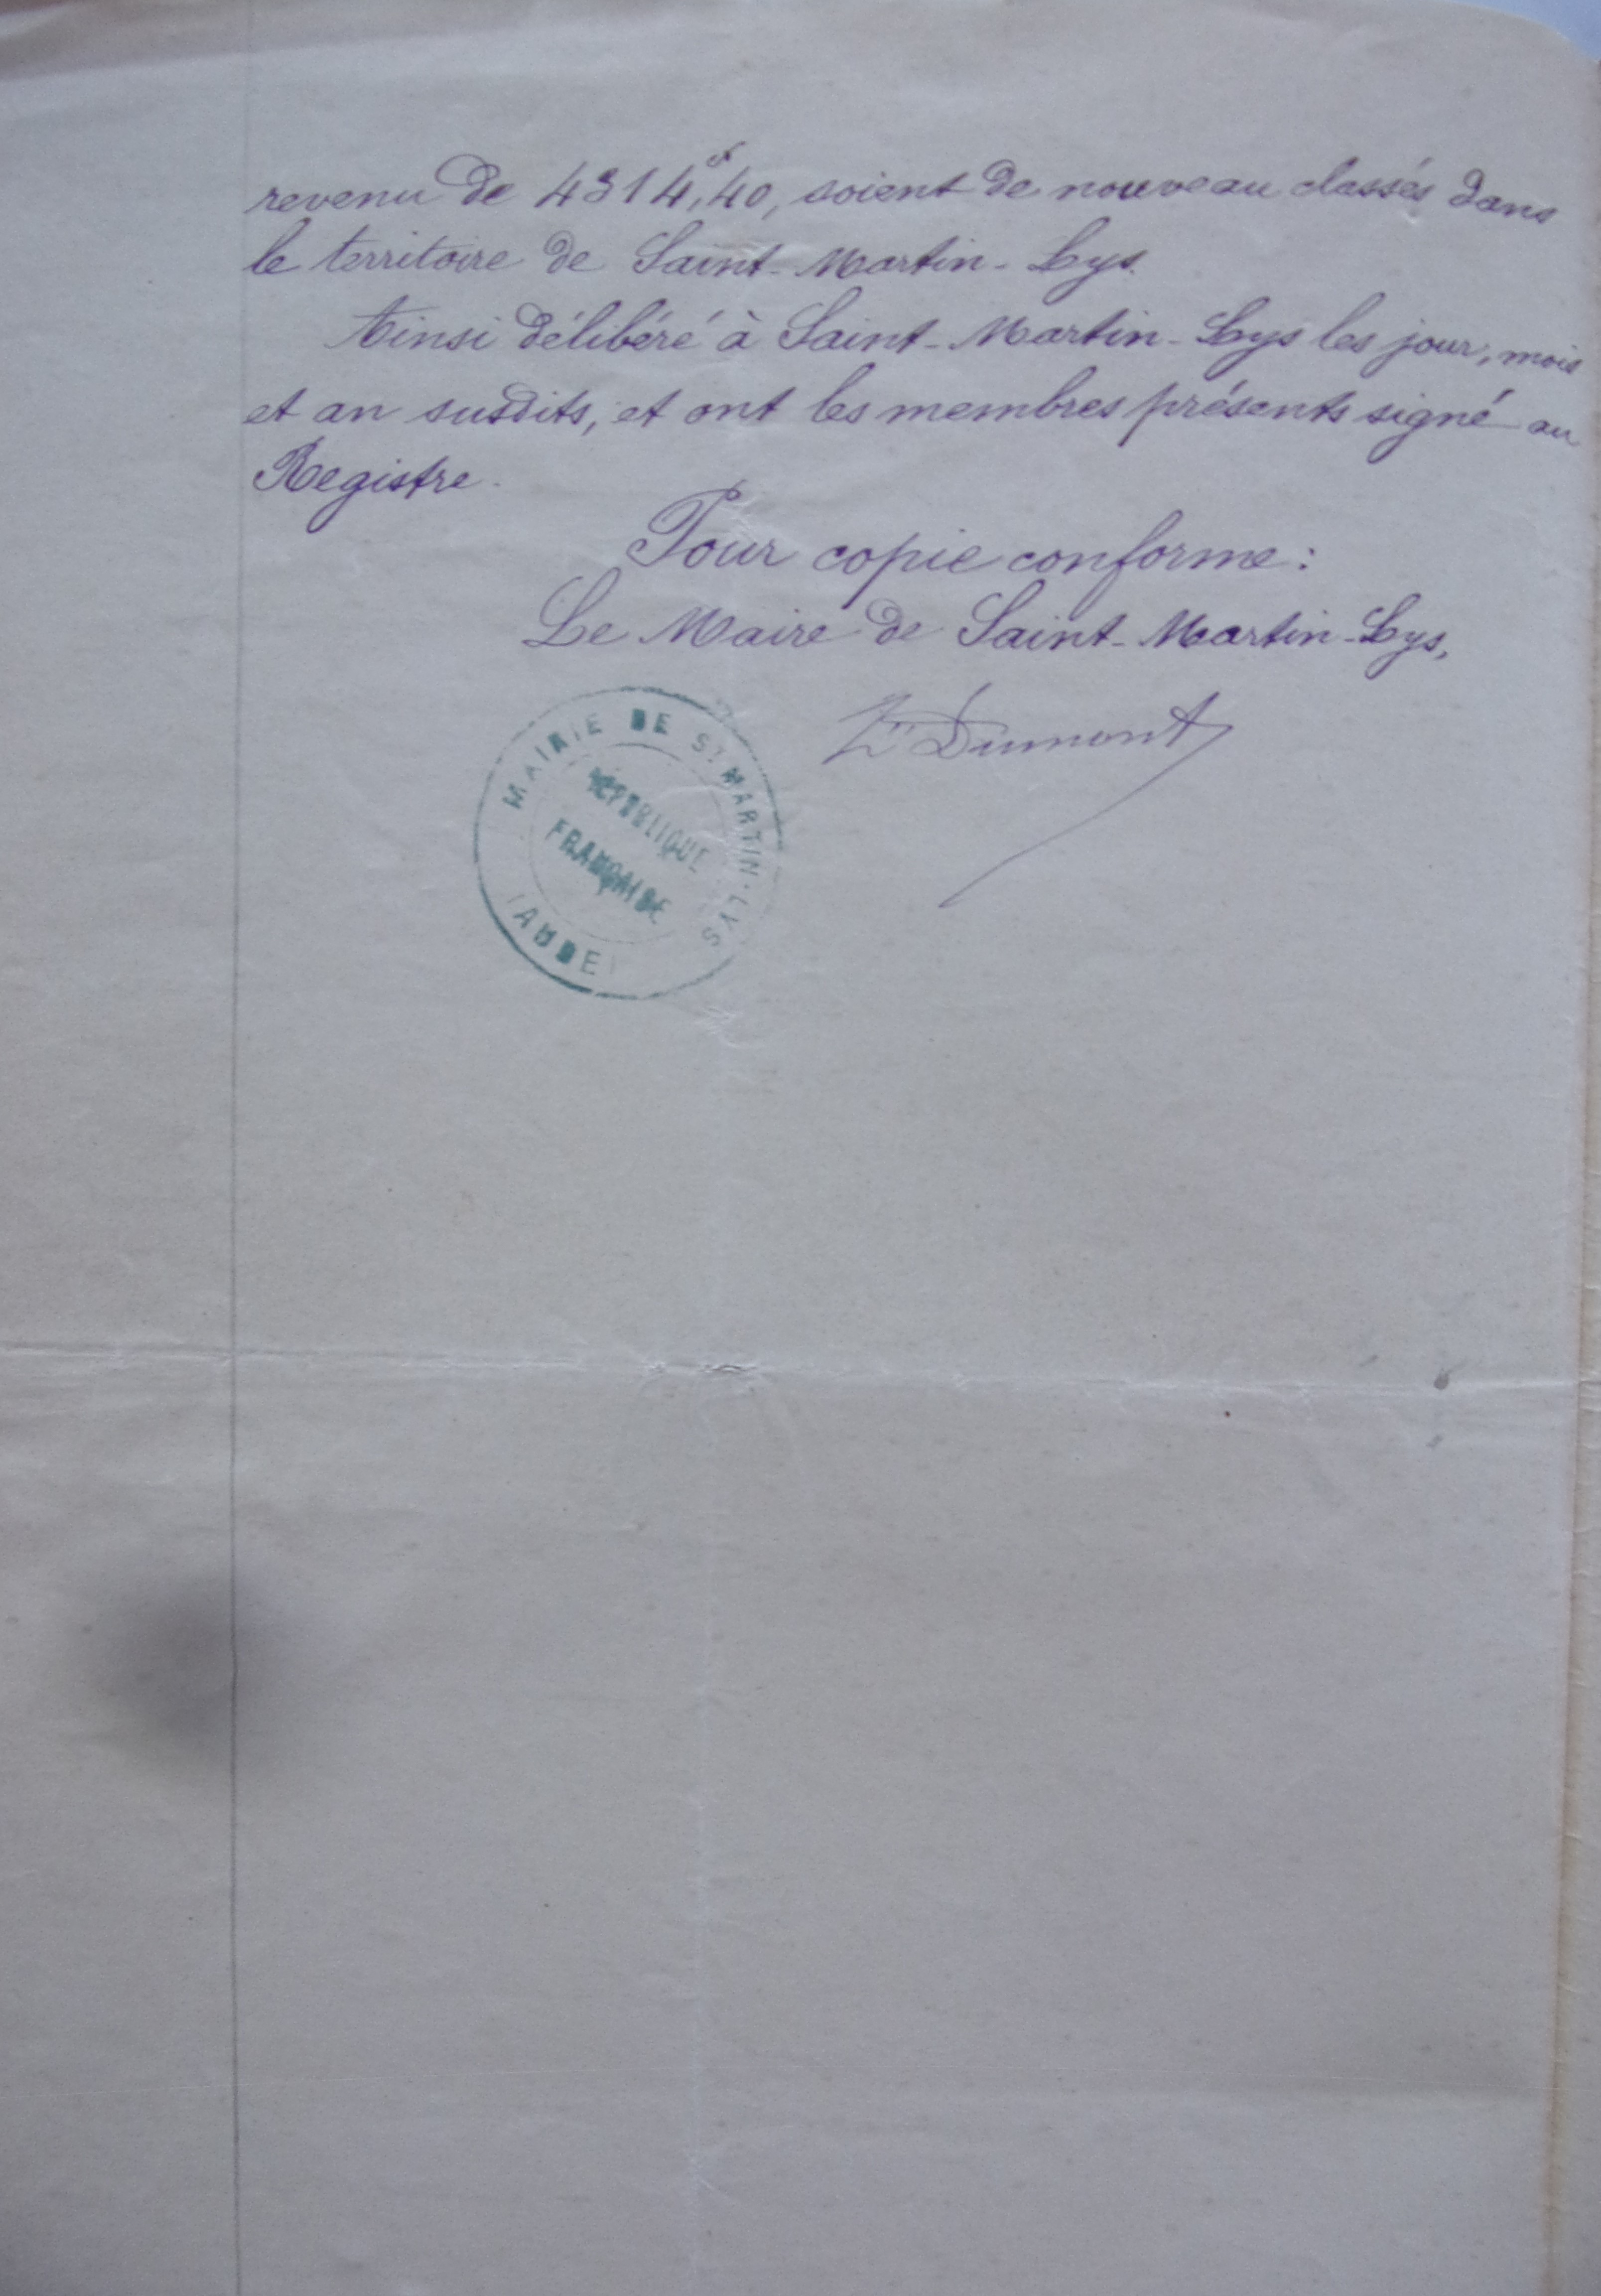 revenu de 4314,40, soient de nouveau classés dans
le territoire de Saint-Martin-Lys.
Ainsi délibéré à Saint-Martin-Lys les jour, mois
et an susdits, et ont les membres présents signé au
Registre.
Pour copie conforme :
Le Maire de Saint-Martin-Lys,
Dumont
MAIRIE DE ST MARTIN-LYS
RÉPUBLIQUE
FRANÇAISE
(AUDE)